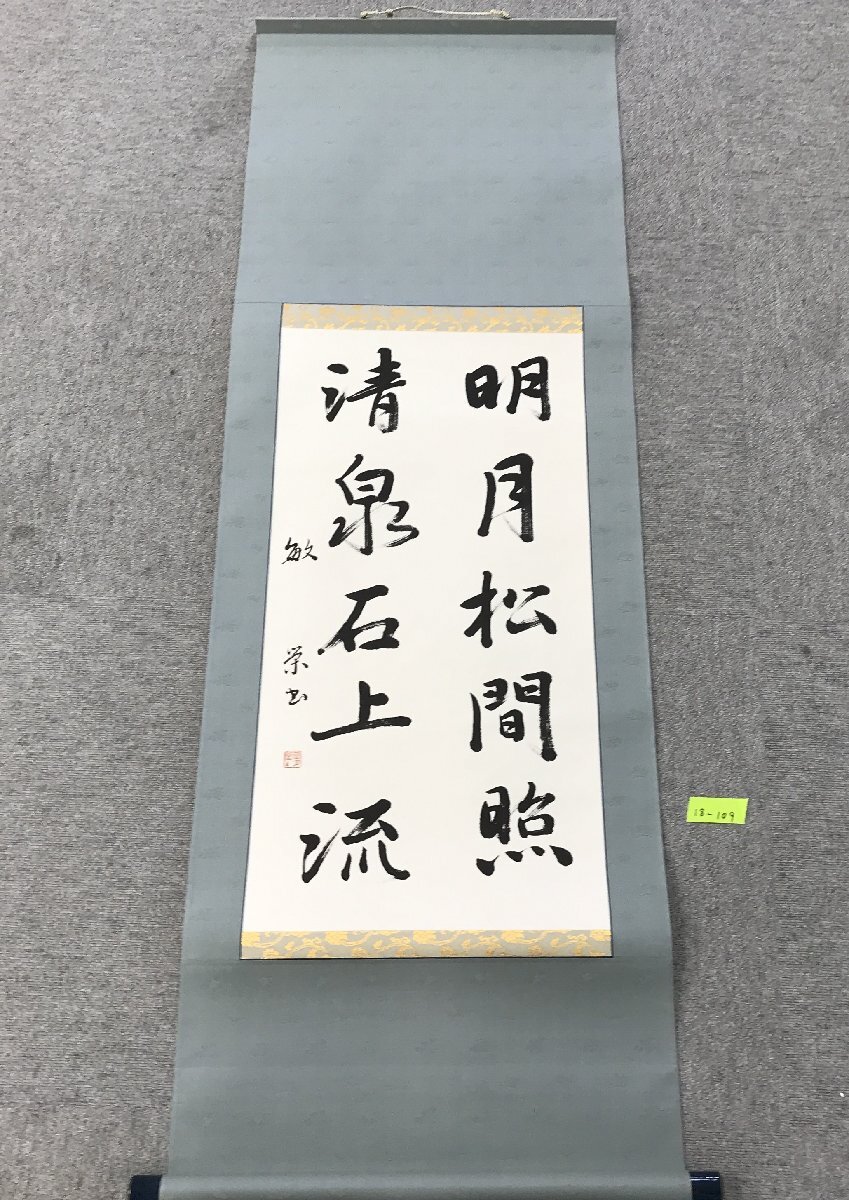 明月松間照
清泉石上流
敏栄书
18-109